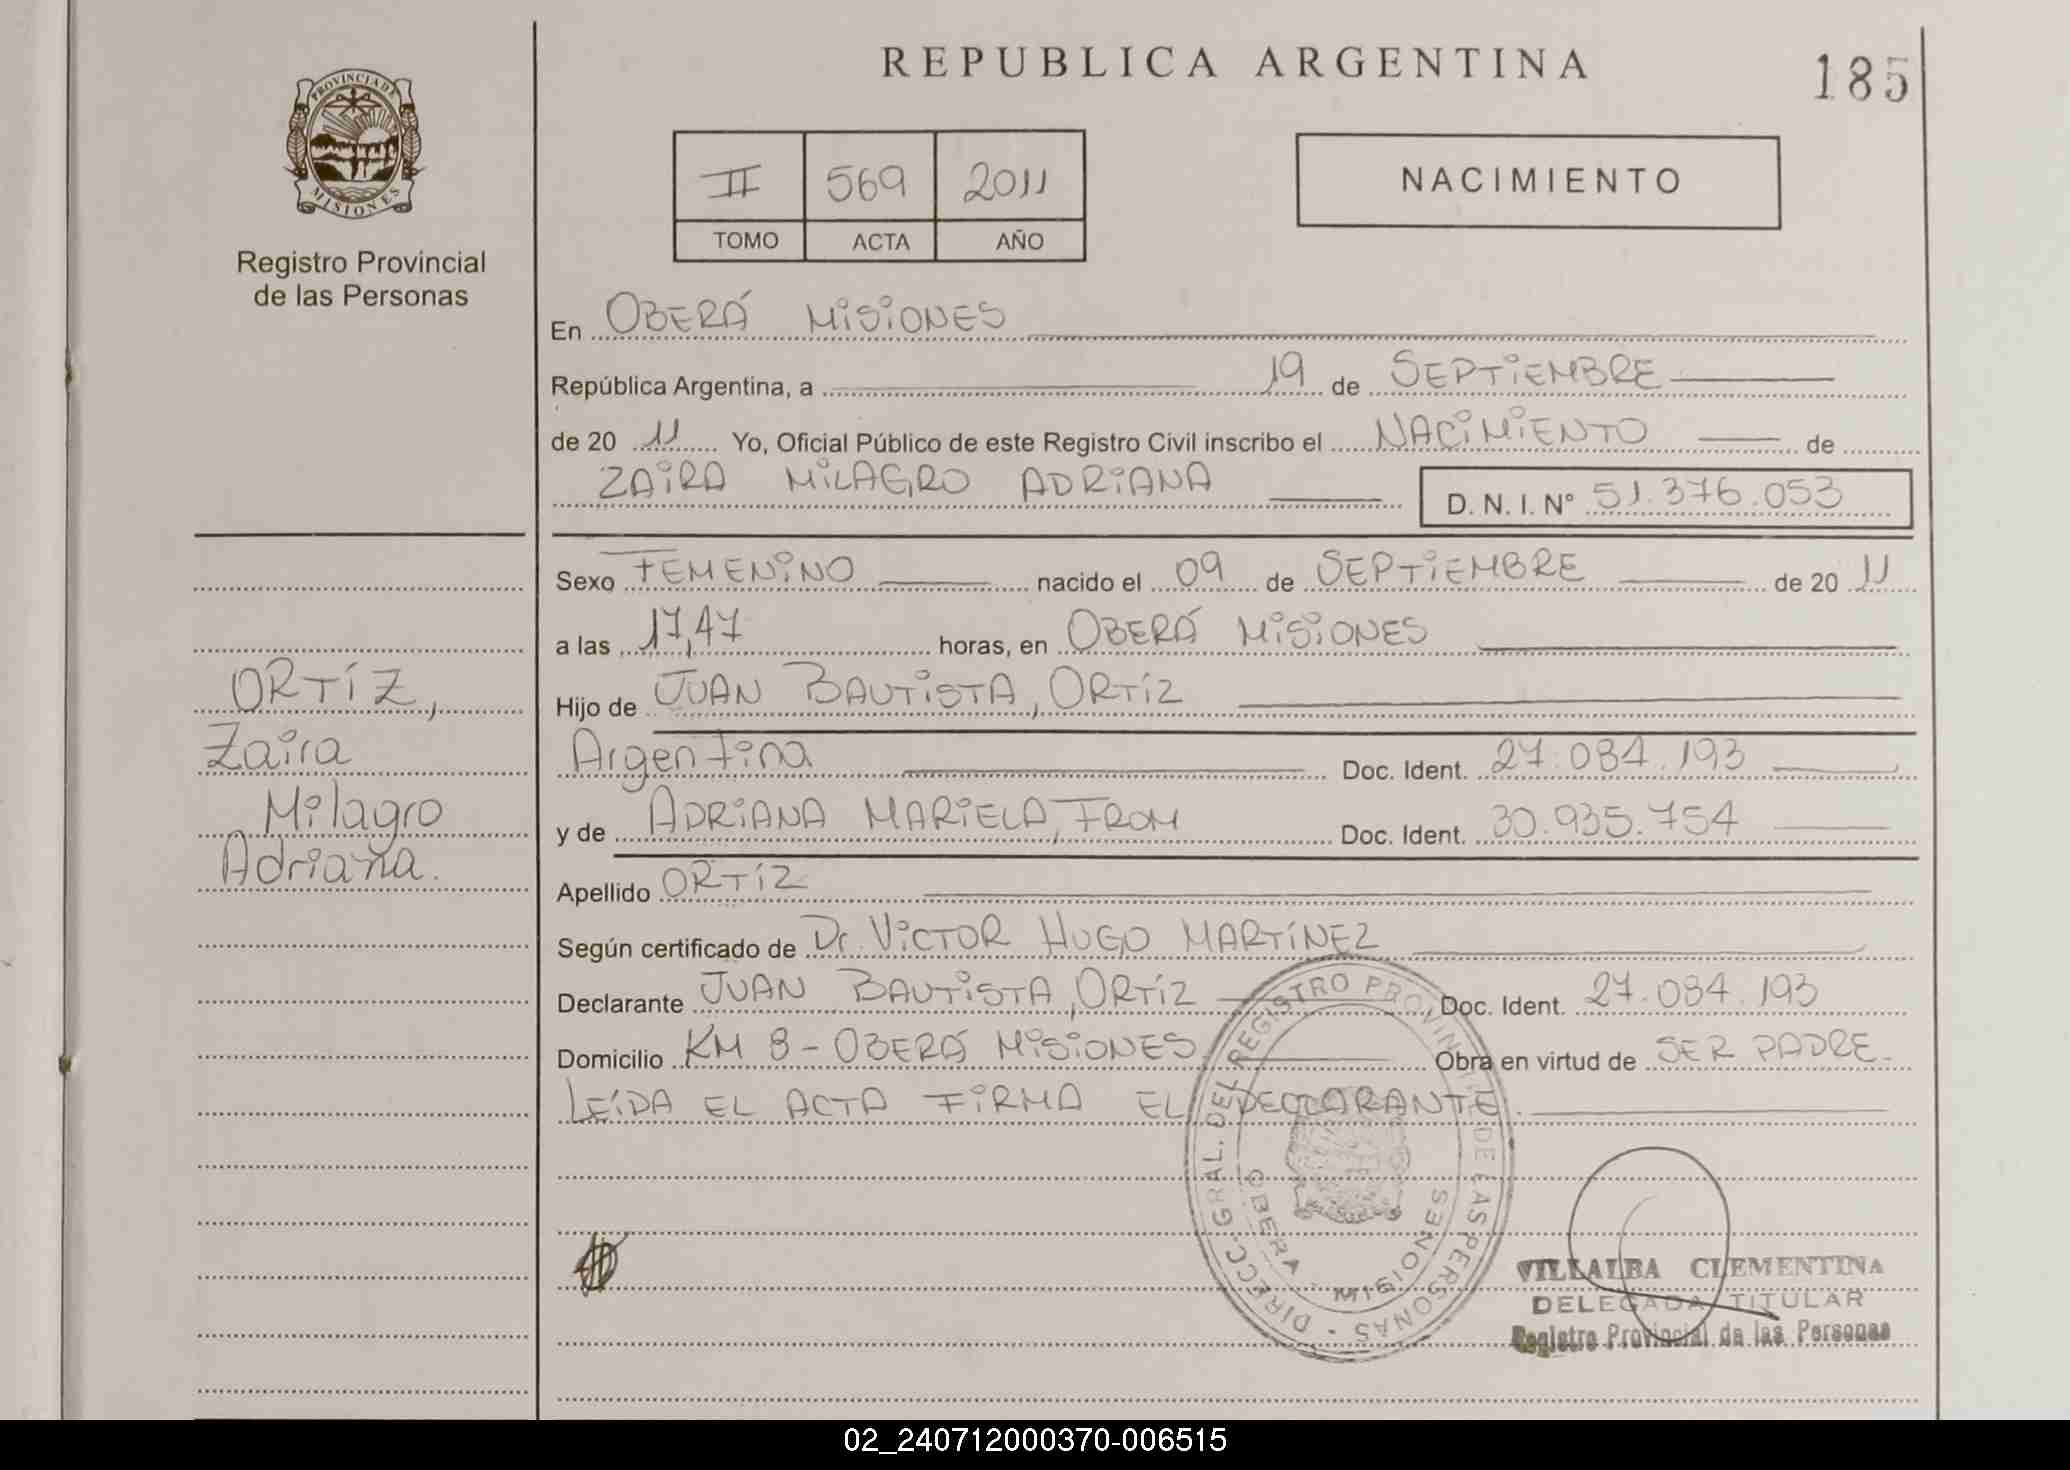 REPUBLICA ARGENTINA
185
PROVINCIA DE
MISIONES
Registro Provincial
de las Personas
II 569 2011
TOMO ACTA AÑO
NACIMIENTO
En OBERÁ MISIONES
República Argentina, a 19 de SEPTIEMBRE
de 20 11 Yo, Oficial Público de este Registro Civil inscribo el NACIMIENTO de
ZAIRA MILAGRO ADRIANA D. N. I. Nº 51.376.053
Sexo FEMENINO nacido el 09 de SEPTIEMBRE de 20 11
a las 17,47 horas, en OBERÁ MISIONES
Hijo de JUAN BAUTISTA, ORTÍZ
Argentina Doc. Ident. 27.084.193
y de ADRIANA MARIELA, FROM Doc. Ident. 30.935.754
Apellido ORTÍZ
Según certificado de Dr. VICTOR HUGO MARTÍNEZ
Declarante JUAN BAUTISTA, ORTÍZ Doc. Ident. 27.084.193
Domicilio KM 8 - OBERÁ MISIONES Obra en virtud de SER PADRE.
LEÍDA EL ACTA FIRMA EL DECLARANTE.
ORTÍZ,
Zaira
Milagro
Adriana.
DIRECC. GRAL. DEL REGISTRO PROVINCIAL DE LAS PERSONAS
OBERA - MISIONES
VILLALBA CLEMENTINA
DELEGADA TITULAR
Registro Provincial de las Personas
02_240712000370-006515